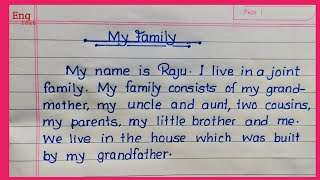 Eng
Teach
Page
My Family
My name is Raju. I live in a joint
family. My family consists of my grand-
mother, my uncle and aunt, two cousins,
my parents, my little brother and me.
We live in the house which was built
by my grandfather.